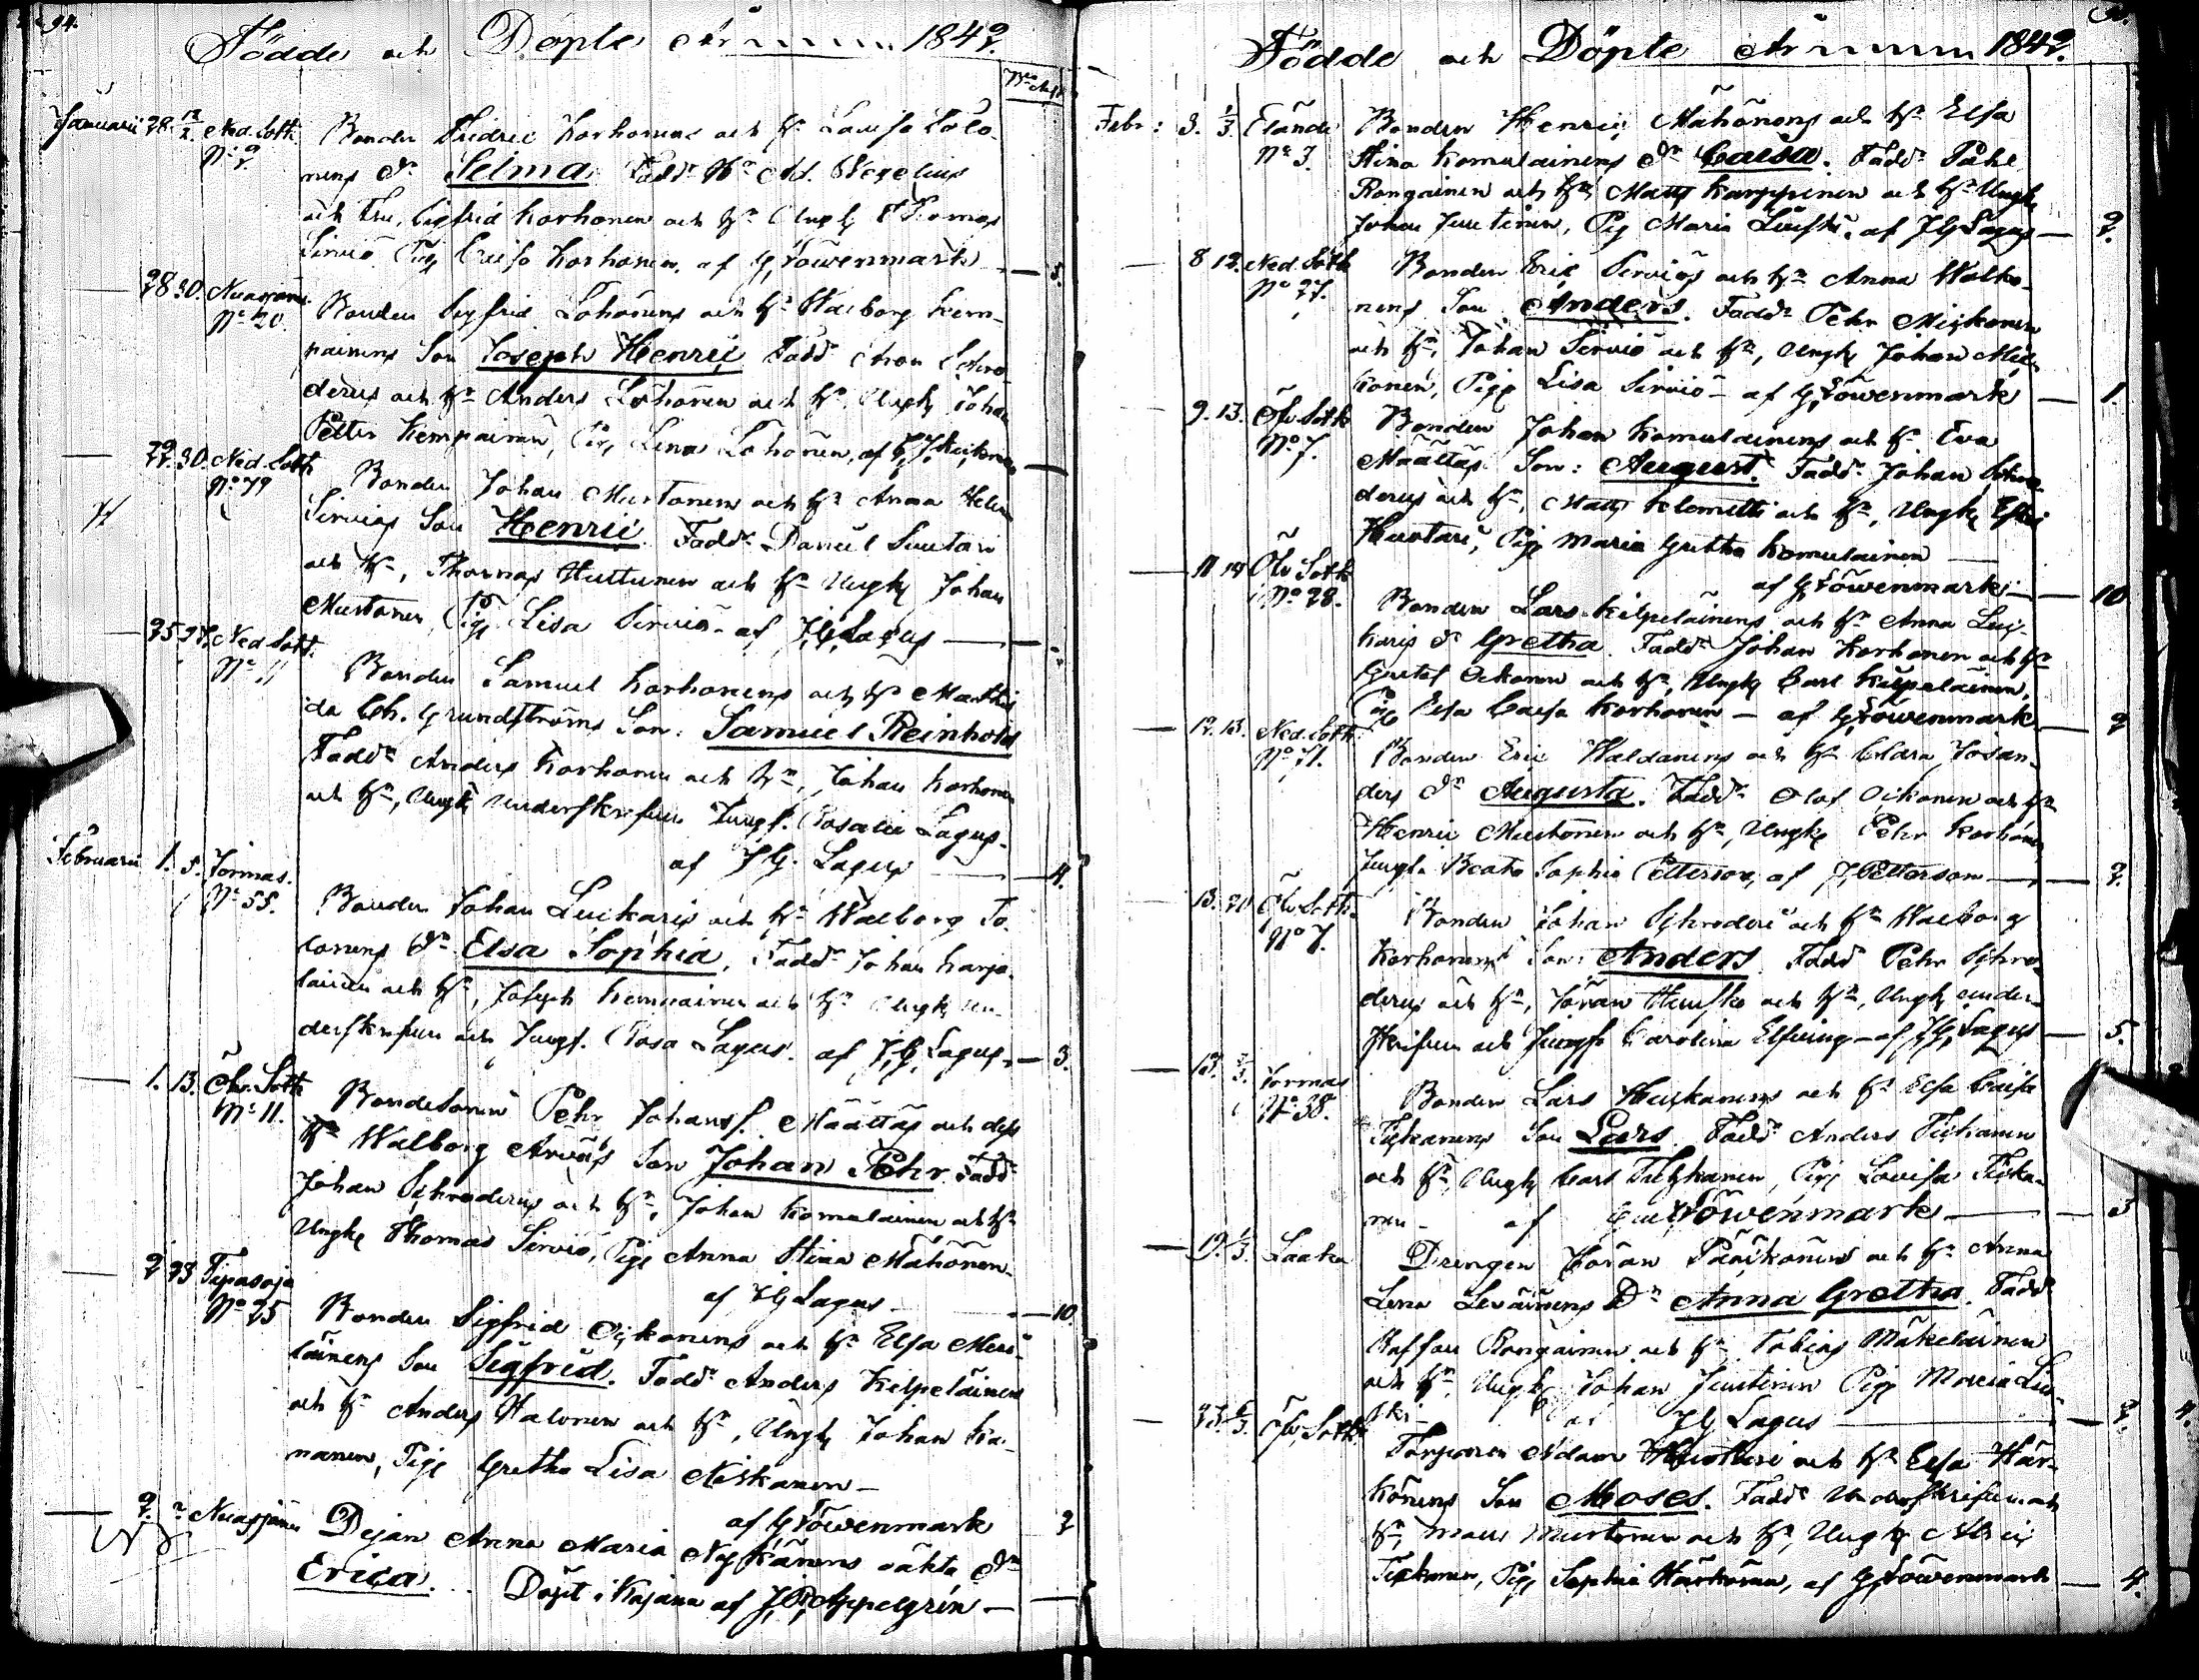 94.
Födde och Döpte År 1842.
Januarii 28. 12/2 Ned. Sotk. Bonden Fredric Korhonens och Hu Lovisa Tolo-
No 2. nens Dr Selma. Fadd. Hr Ad. Wegelius
och Fru, Sigfrid Korhonen och Hu Ungk Thomas
Sirviö Pig Caisa Korhonen, af G Löwenmark — 5.
28 30. Nuasjärvi Bonden Sigfrid Lohonens och Hu Walborg Kem-
No 20. painens Son Joseph Henric Fadd Aron Schro-
derus och Hu Anders Lohonen och Hu, Ungk Johan
Petter Kempainen, Pig Lena Lohonen, af
29 30. Ned. Sotk Bonden Johan Mustonen och Hu Anna Helena
No 79 Sirviös Son Henric. Fadd. Daniel Suutari
och Hu, Thomas Huttunen och Hu Ungk Johan
Mustonen, Pig Lisa Sirviö - af J G Lagus —
25 27. Ned Sotk. Bonden Samuel Korhonens och Hu Mathil-
No 11 da Ch. Grundströms Son: Samuel Reinhold
Fadd. Anders Korhonen och Hu, Johan Korhonen
och Hu, Ungk Underskrifven Jungf. Rosalie Lagus.
af J G. Lagus — 4.
Februarii 1. 5. Jormas. Bonden Johan Luckaris och Hu Walborg To-
No 55. lonens Dr Elsa Sophia, Fadd. Johan Karja-
lainen och Hu, Joseph Kemuainen och Hu Ungk un-
derskrifven och Jungf. Rosa Lagus. af J. G. Lagus. — 3.
1. 13. Öfv. Sotk Bondesonen Pehr Johans S. Määttäs och dess
No 11. Hu Walborg Arvas Son Johan Pehr. Fadd
Johan Schroderus och Hu, Johan Komulainen och Hu
Ungk Thomas Sirviö, Pig Anna Stina Mähönen.
af J G Lagus — 10.
2 23 Tipasoja Bonden Sigfrid Oikonens och Hu Elsa Meri-
No 25 läinens Son Sigfrid. Fadd. Anders Kilpeläinen
och Hu Anders Halonen och Hu, Ungk Johan Ka-
nanen, Pig Gretha Lisa Niskanen —
af G Löwenmark 2
2. ? Nuasjärvi Pejan Anna Maria Nyskänens oäkta Dr
Erica. Döpt i Kajana af J. R. Appelgrén —
Födde och Döpte År 1842.
Febr: 3. 1/3 Elände Bonden Henric Mähönens och Hu Elsa
No 3. Stina Komulainens Dr Caisa. Fadd. Påhl
Rongainen och Hu, Matts Karppinen och Hu Ungk
Johan Juutinen, Pig Maria Luuski. af J G Lagus — 2.
8 12. Ned. Sotk Bonden Eric Serviös och Hu Anna Walko-
No 27. nens Son Anders. Fadd. Pehr Mickonen
och Hu, Johan Sirviö och Hu, Ungk Johan Mic-
konen, Pig Lisa Sirviö - af G Löwenmark — 1.
9. 13. Öfv. Sotk Bonden Johan Komulainens och Hu Eva
No 7. Määttäs Son: August. Fadd. Johan Schro-
derus och Hu, Matts Klemetti och Hu, Ungk
Huotari, Pig Maria Gretha Komulainen —
af G Löwenmark — 10
11 14 Öfv Sotk Bonden Lars Kilpeläinens och Hu Anna Luc-
No 28. karis Dr Gretha. Fadd. Johan Korhonen och Hu
Gustaf Oikonen och Hu, Ungk Carl Kilpeläinen,
Pig Elsa Caisa Korhonen — af G Löwenmark — 2
12. 13. Ned. Sotk. Bonden Eric Haldanens och Hu Josan-
No 71. ders Dr Augusta. Fadd. Olof Oikonen och Hu
Henric Mustonen och Hu, Ungk Pehr Korhonen
Jungf. Beata Sophia Petterson, af J Petterson — 2.
13. 20 Öfv Sotk. Bonden Johan Schroderi och Hu Walborg
No 7. Korhonens Son: Anders. Fadd Pehr Schro-
derus och Hu, Jöran Huusko och Hu, Ungk under-
skrifven och Jungfr Carolina Elfving - af J G Lagus — 5.
Jormas Bonden Lars Huskanens och Hu Elsa Caisa
No 38. Tiskanens Son Lars. Fadd. Anders Tiskanen
och Hu, Ungk Carl Tiiskanen, Pig Lovisa Tiska-
nen - af Löwenmark — 3
19. 1/3 Laaka Drengen Göran Pääskönens och Hu Anna
Lena Leväinens Dr Anna Gretha. Fadd
Staffan Rongainen och Hu Tobias Mäkeläinen
och Hu, Ungk Johan Juutinen Pig Maria Luu-
ski - af J G Lagus — 2.
Öfv. Sotk. Torparen Adam Huotari och Hu Elsa Här-
könens Son Moses. Fadd. Underskrifven och
Hu, Matts Mustonen och Hu, Ungk
Tiskanen, Pig Sophia Härkönen, af G Löwenmark — 4.